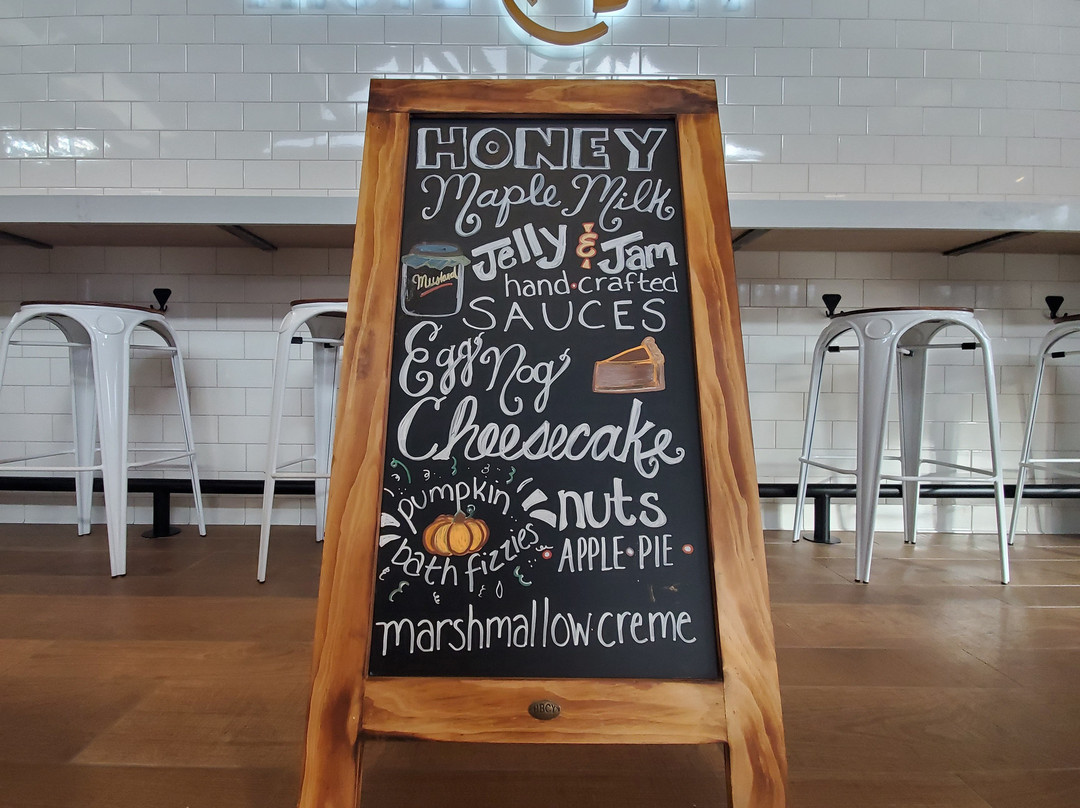 HONEY
Maple Milk
Jelly & Jam
Mustard
hand•crafted
SAUCES
Egg Nog
Cheesecake
pumpkin
bath fizzies
nuts
APPLE•PIE
marshmallow•creme